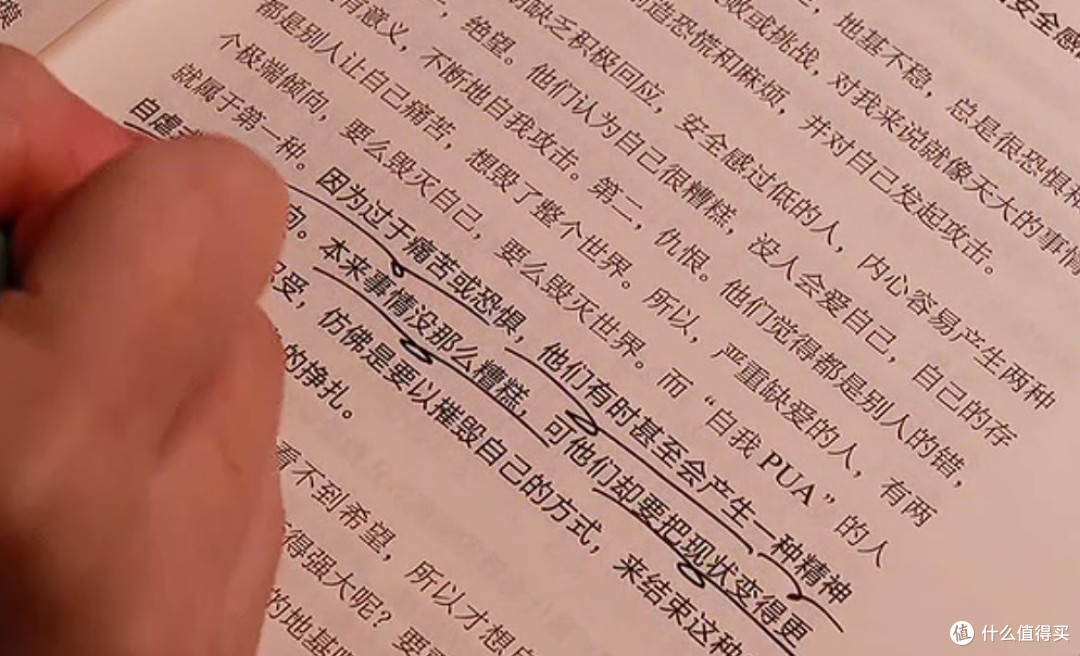 安全感
地基不稳，总是很恐惧和
败或挑战，对我来说就像天大的事情
制造恐慌和麻烦，并对自己发起攻击。
缺乏积极回应，安全感过低的人，内心容易产生两种
绝望。他们认为自己很糟糕，没人会爱自己，自己的存
有意义，不断地自我攻击。第二，仇恨。他们觉得都是别人的错，
都是别人让自己痛苦，想毁了整个世界。所以，严重缺爱的人，有两
个极端倾向，要么毁灭自己，要么毁灭世界。而“自我 PUA”的人
就属于第一种。因为过于痛苦或恐惧，他们有时甚至会产生一种精神
自虐 向。本来事情没那么糟糕，可他们却要把现状变得更
受，仿佛是要以摧毁自己的方式，来结束这种
的挣扎。
看不到希望，所以才想
得强大呢？要
的地基
值 什么值得买